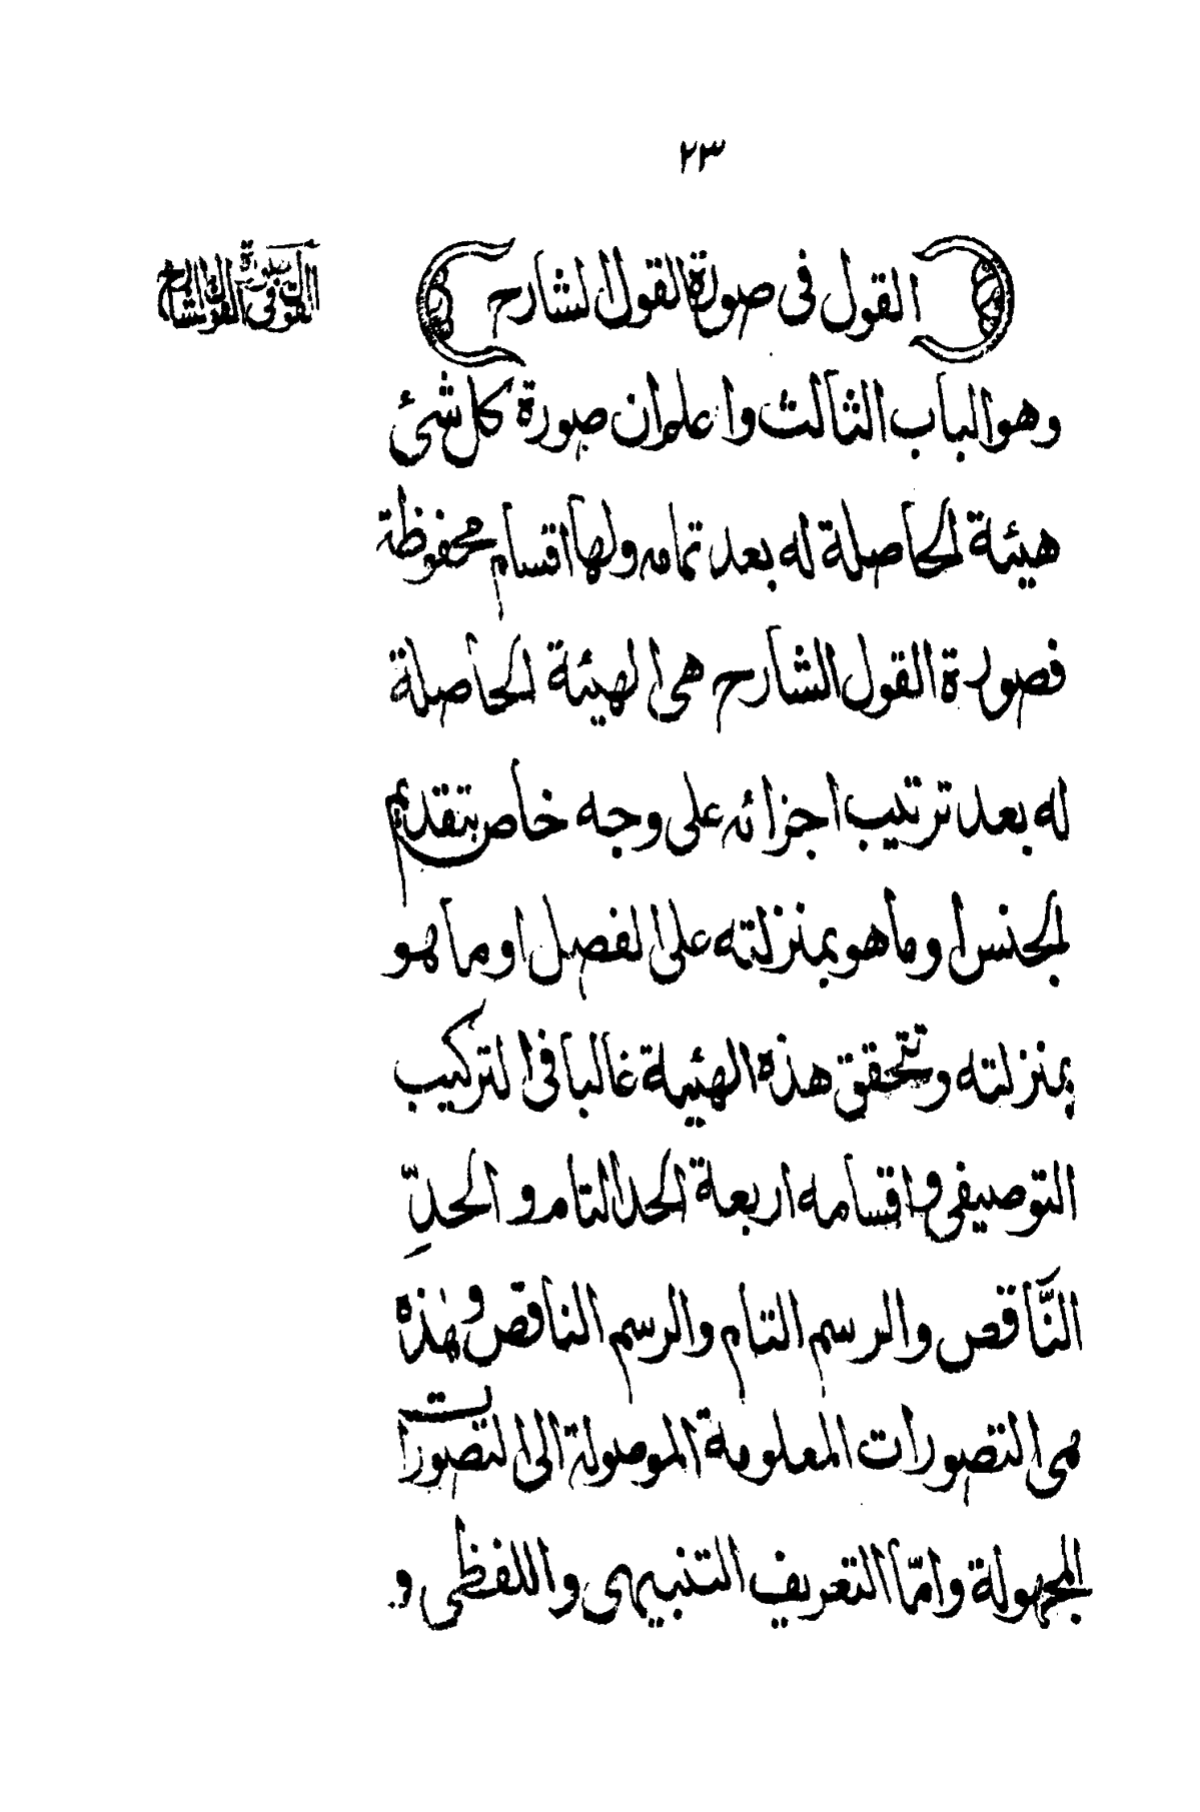 ٢٣
القول فى صورة القول الشارح
القول فى صورة القول الشارح
وهو الباب الثالث واعلم ان صورة كل شئ
هيئة الحاصلة له بعد تمامه ولها اقسام محفوظة
فصورة القول الشارح هى الهيئة الحاصلة
له بعد ترتيب اجزائه على وجه خاص بتقديم
الجنس او ما هو بمنزلته على الفصل او ما هو
بمنزلته وتتحقق هذه الهيئة غالبا فى التركيب
التوصيفى واقسامه اربعة الحد التام والحدِّ
النَّاقص والرسم التام والرسم الناقص وهذه
هى التصورات المعلومة الموصولة الى التصورات
المجهولة وامّا التعريف التنبيهى واللفظى و